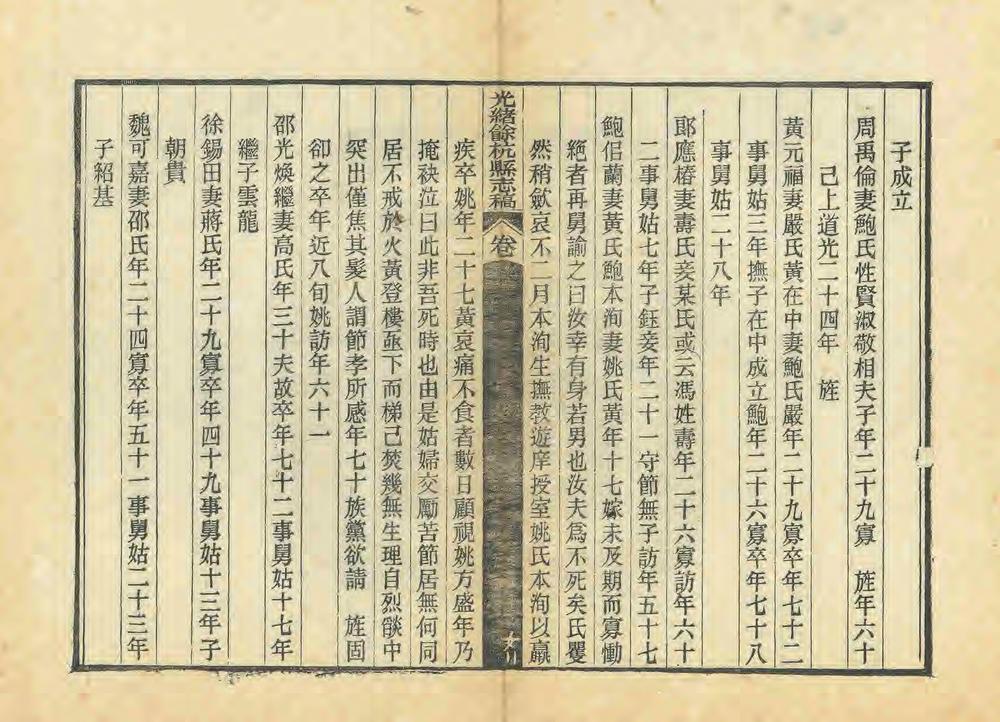 子成立
周禹倫妻鮑氏性賢淑敬相夫子年二十九寡　旌年六十
己上道光二十四年　旌
黃元福妻嚴氏黃在中妻鮑氏嚴年二十九寡卒年七十二
事舅姑三年撫子在中成立鮑年二十六寡卒年七十八
事舅姑二十八年
郞應椿妻壽氏妾某氏或云馮姓壽年二十六寡訪年六十
二事舅姑七年子鈺妾年二十一守節無子訪年五十七
鮑佀蘭妻黃氏鮑本洵妻姚氏黃年十七嫁未及期而寡慟
絕者再舅諭之曰汝幸有身若男也汝夫爲不死矣氏矍
然稍歛哀不二月本洵生撫教遊庠授室姚氏本洵以羸
光緒餘杭縣志稿
卷
疾卒姚年二十七黃哀痛不食者數日顧視姚方盛年乃
掩袂泣曰此非吾死時也由是姑婦交勵苦節居無何同
居不戒於火黃登樓亟下而梯已焚幾無生理自烈燄中
突出僅焦其髮人謂節孝所感年七十族黨欲請　旌固
卻之卒年近八旬姚訪年六十一
邵光煥繼妻高氏年三十夫故卒年七十二事舅姑十七年
繼子雲龍
徐錫田妻蔣氏年二十九寡卒年四十九事舅姑十三年子
朝貴
魏可嘉妻邵氏年二十四寡卒年五十一事舅姑二十三年
子紹基